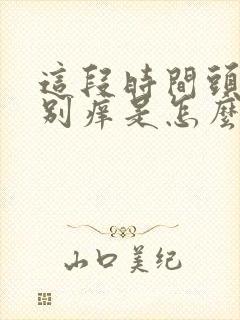 這段時間頭
別痒是怎麼
山口美纪